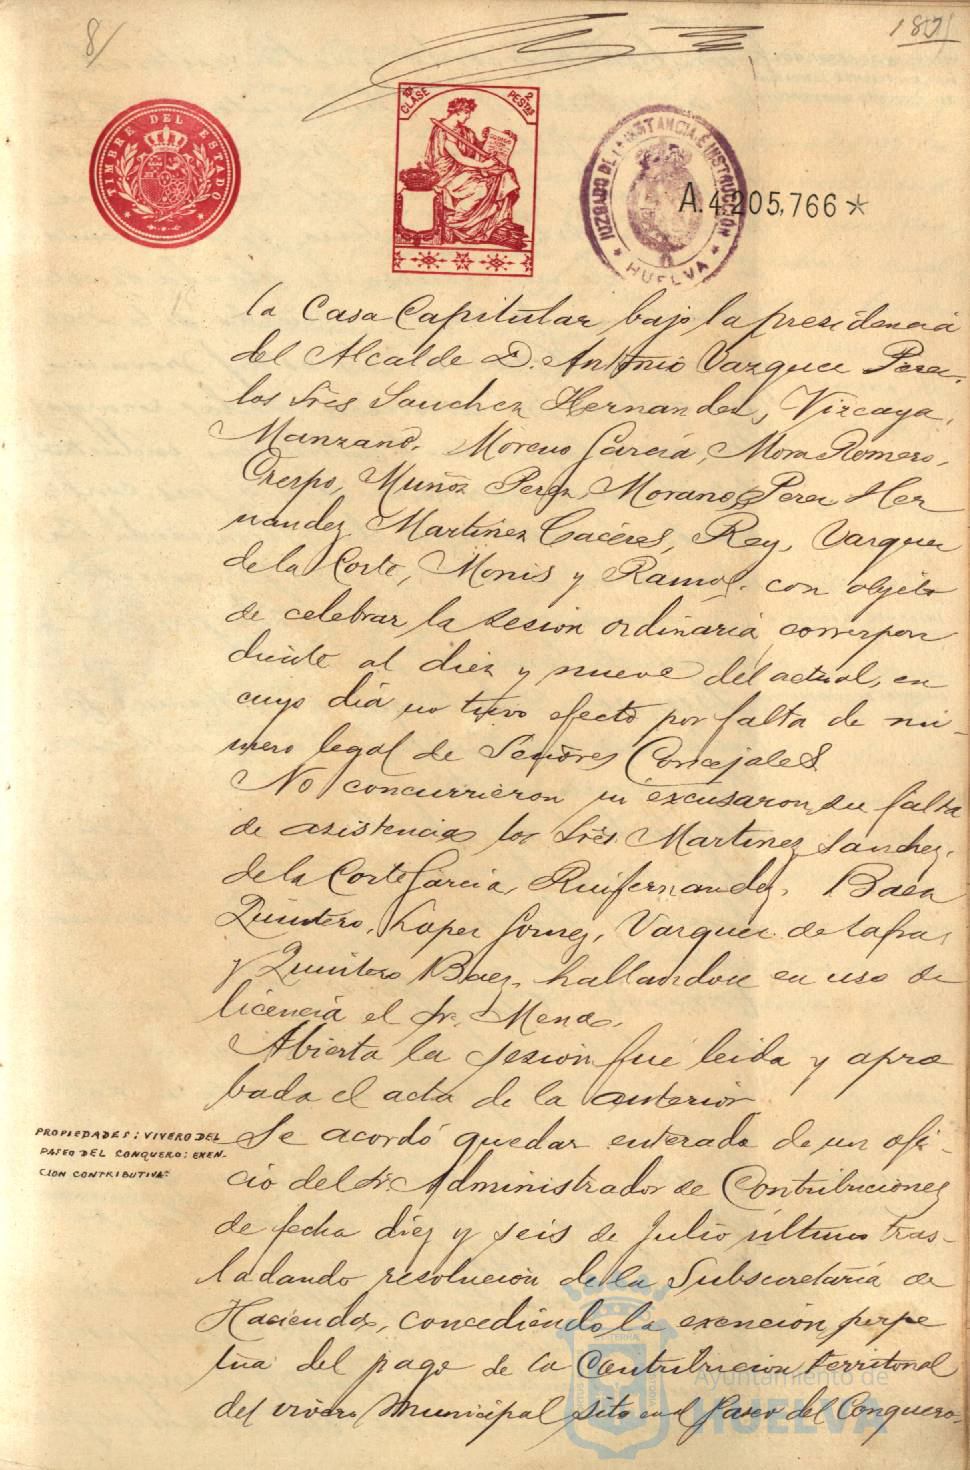 8/
TIMBRE DEL ESTADO
10ª CLASE
2 PESTAS
JUZGADO DE 1ª INSTANCIA E INSTRUCCIÓN
HUELVA
A.4.205,766*
la Casa Capitular bajo la presidencia
del Alcalde D. Antonio Vazquez Perez.
los Srēs Sanchez Hernandez, Vizcaya,
Manzano, Moreno García, Mora Romero,
Crespo, Muñoz Perez, Morano, Perez Her
nandez, Martinez Cacéres, Rey, Vazquez
de la Corte, Monis y Ramos. con objeto
de celebrar la sesion ordinaria correspon
diente al diez y nueve del actual, en
cuyo día no tuvo efecto por falta de nú-
mero legal de Señores Concejales
No concurrieron ni excusaron su falta
de asistencia los Srēs. Martinez Sanchez,
de la Corte García, Ruifernandez, Baea
Quintero, Lopez Gomez, Vazquez de Zafra,
y Quintero Baez, hallandose en uso de
licencia el Sr. Mena.
Abierta la sesion fué leida y apro
bada el acta de la anterior
PROPIEDADES: VIVERO DEL
PASEO DEL CONQUERO: EXEN-
CION CONTRIBUTIVA:
Se acordó quedar enterado de un ofi-
cio del Sr. Administrador de Contribuciones
de fecha diez y seis de Julio último tras-
ladando resolución de la Subsecretaría de
Hacienda, concediendo la exención perpe
túa del pago de la Contribucion territorial
del vivero Municipal sito en el Paseo del Conquero.
Ayuntamiento de
HUELVA